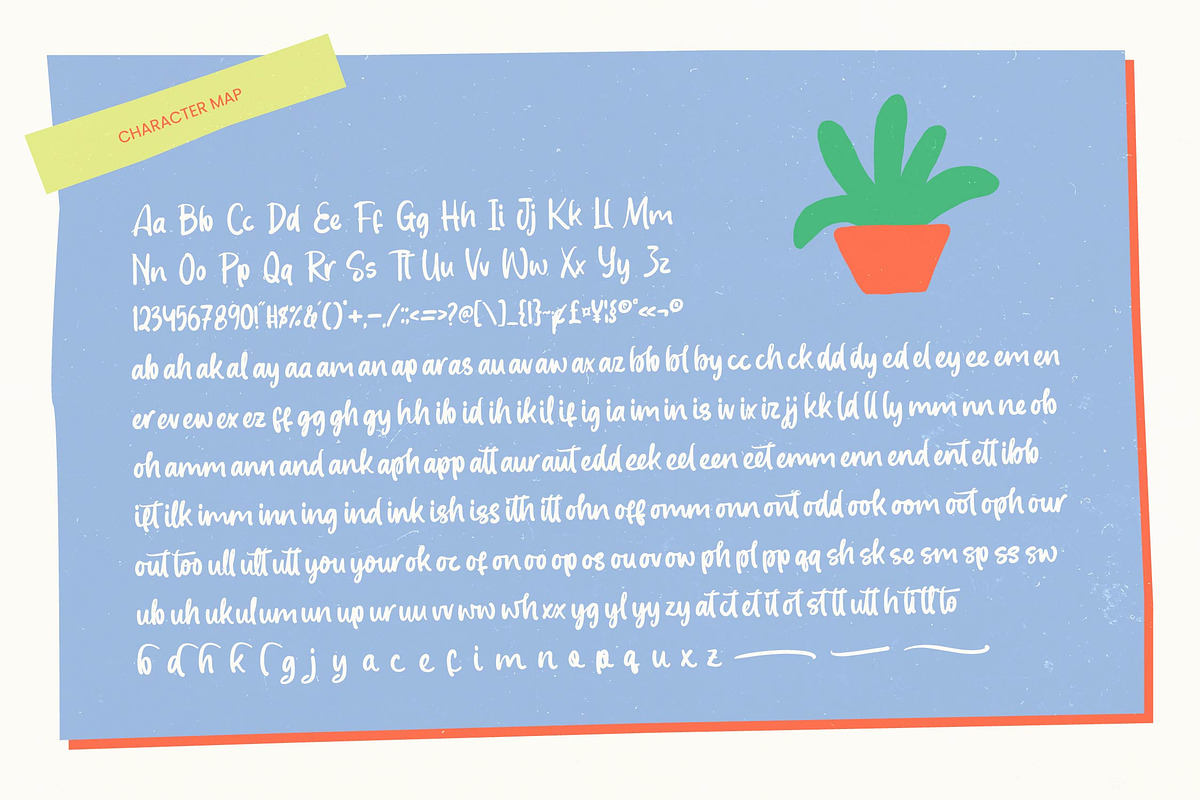 CHARACTER MAP
Aa Bb Cc Dd Ee Ff Gg Hh Ii Jj Kk Ll Mm
Nn Oo Pp Qq Rr Ss Tt Uu Vv Ww Xx Yy Zz
1234567890!"#$%&'()*+,-./:;<=>?@[\]_{|}~¢£¤¥¦§©°«¬®
ab ah ak al ay aa am an ap ar as au av aw ax az bb bl by cc ch ck dd dy ed el ey ee em en
er ev ew ex ez ff gg gh gy hh ib id ih ik il if ig ia im in is iv ix iz jj kk ld ll ly mm nn ne ob
oh amm ann and ank aph app att aur aut edd eek eel een eet emm enn end ent ett ibb
ift ilk imm inn ing ind ink ish iss ith itt ohn off omm onn ont odd ook oom oot oph our
out too ull ult utt you your ok oc of on oo op os ou ov ow ph pl pp qq sh sk se sm sp ss sw
ub uh uk ul um un up ur uu vv ww wh xx yg yl yy zy at ct et it ot st tt utt h ti tl tt to
b d h k l g j y a c e f i m n o p q u x z